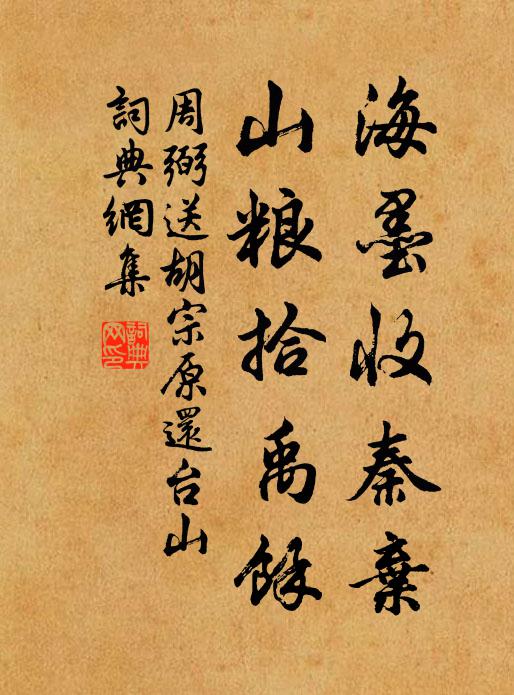 海墨收秦棄
山粮拾禹餘
周弼送胡宗原還台山
詞典網集
詞典网印